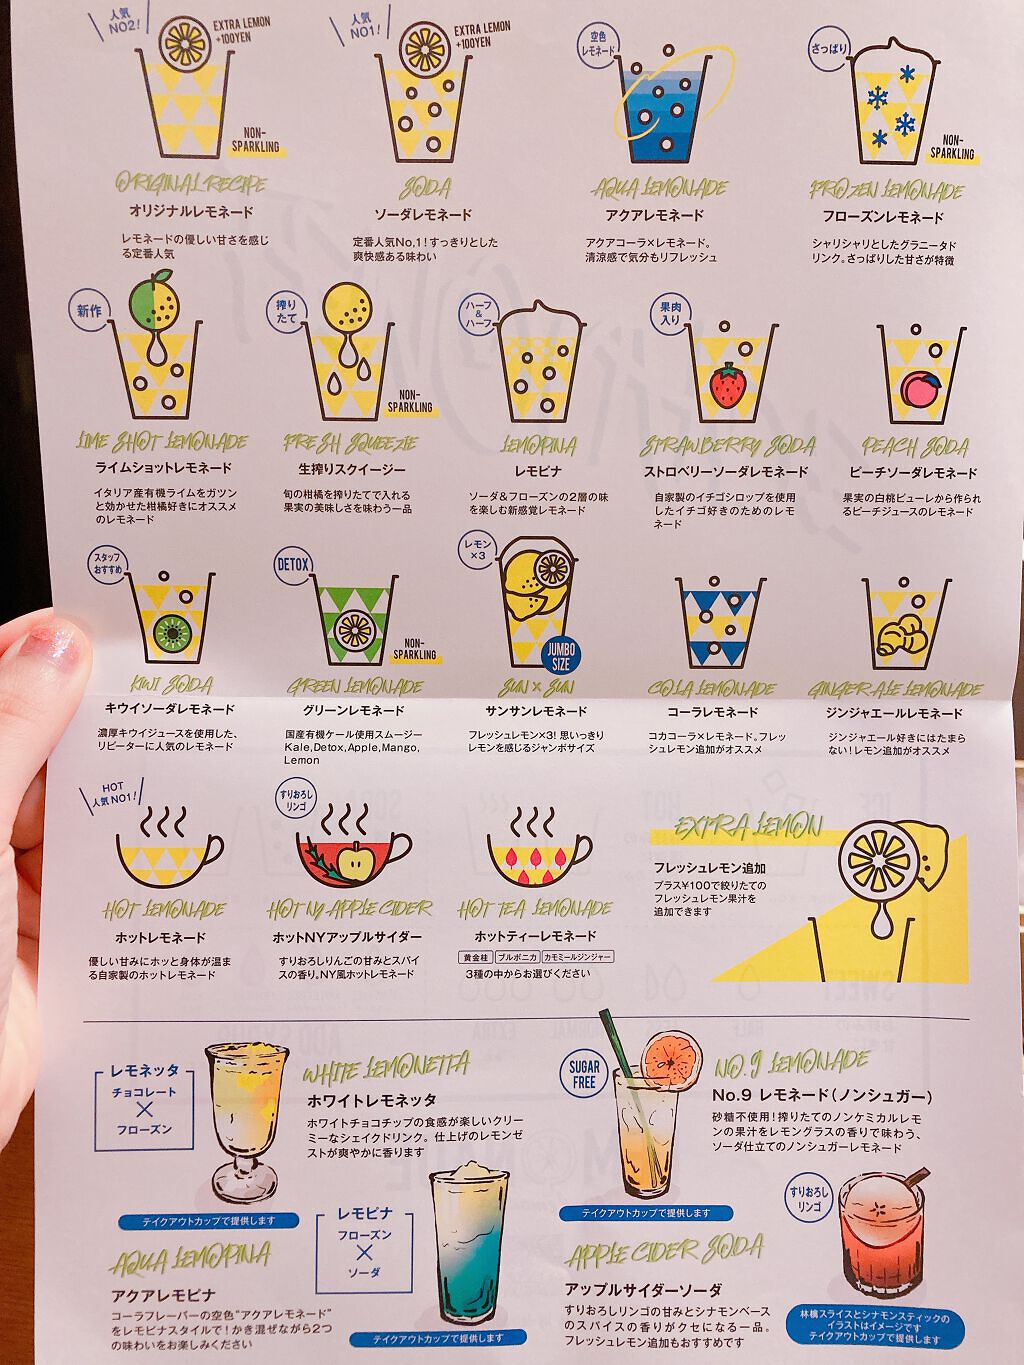 人気
NO2!
EXTRA LEMON
+100YEN
NON-
SPARKLING
ORIGINAL RECIPE
オリジナルレモネード
レモネードの優しい甘さを感じ
る定番人気
人気
NO1!
EXTRA LEMON
+100YEN
SODA
ソーダレモネード
定番人気No,1!すっきりとした
爽快感ある味わい
空色
レモネード
AQUA LEMONADE
アクアレモネード
アクアコーラ×レモネード。
清涼感で気分もリフレッシュ
さっぱり
NON-
SPARKLING
FROZEN LEMONADE
フローズンレモネード
シャリシャリとしたグラニータド
リンク。さっぱりした甘さが特徴
新作
LIME SHOT LEMONADE
ライムショットレモネード
イタリア産有機ライムをガツン
と効かせた柑橘好きにオススメ
のレモネード
搾り
たて
NON-
SPARKLING
FRESH SQUEEZIE
生搾りスクイージー
旬の柑橘を搾りたてで入れる
果実の美味しさを味わう一品
ハーフ
&
ハーフ
LEMOPINA
レモピナ
ソーダ&フローズンの2層の味
を楽しむ新感覚レモネード
果肉
入り
STRAWBERRY SODA
ストロベリーソーダレモネード
自家製のイチゴシロップを使用
したイチゴ好きのためのレモ
ネード
PEACH SODA
ピーチソーダレモネード
果実の白桃ピューレから作られ
るピーチジュースのレモネード
スタッフ
おすすめ
KIWI SODA
キウイソーダレモネード
濃厚キウイジュースを使用した、
リピーターに人気のレモネード
DETOX
NON-
SPARKLING
GREEN LEMONADE
グリーンレモネード
国産有機ケール使用スムージー
Kale,Detox,Apple,Mango,
Lemon
レモン
×3
JUMBO
SIZE
SUN × SUN
サンサンレモネード
フレッシュレモン×3!思いっきり
レモンを感じるジャンボサイズ
COLA LEMONADE
コーラレモネード
コカコーラ×レモネード。フレッ
シュレモン追加がオススメ
GINGER ALE LEMONADE
ジンジャエールレモネード
ジンジャエール好きにはたまら
ない!レモン追加がオススメ
HOT
人気NO1!
HOT LEMONADE
ホットレモネード
優しい甘みにホッと身体が温ま
る自家製のホットレモネード
すりおろし
リンゴ
HOT NY APPLE CIDER
ホットNYアップルサイダー
すりおろしりんごの甘みとスパイ
スの香り。NY風ホットレモネード
HOT TEA LEMONADE
ホットティーレモネード
黄金桂 ブルボニカ カモミールジンジャー
3種の中からお選びください
EXTRA LEMON
フレッシュレモン追加
プラス¥100で絞りたての
フレッシュレモン果汁を
追加できます
レモネッタ
チョコレート
×
フローズン
WHITE LEMONETTA
ホワイトレモネッタ
ホワイトチョコチップの食感が楽しいクリー
ミーなシェイクドリンク。仕上げのレモンゼ
ストが爽やかに香ります
テイクアウトカップで提供します
SUGAR
FREE
NO.9 LEMONADE
No.9 レモネード(ノンシュガー)
砂糖不使用!搾りたてのノンケミカルレモ
ンの果汁をレモングラスの香りで味わう、
ソーダ仕立てのノンシュガーレモネード
テイクアウトカップで提供します
AQUA LEMOPINA
アクアレモピナ
コーラフレーバーの空色"アクアレモネード"
をレモピナスタイルで!かき混ぜながら2つ
の味わいをお楽しみください
レモピナ
フローズン
×
ソーダ
テイクアウトカップで提供します
APPLE CIDER SODA
アップルサイダーソーダ
すりおろしリンゴの甘みとシナモンベース
のスパイスの香りがクセになる一品。
フレッシュレモン追加もおすすめです
すりおろし
リンゴ
林檎スライスとシナモンスティックの
イラストはイメージです
テイクアウトカップで提供します